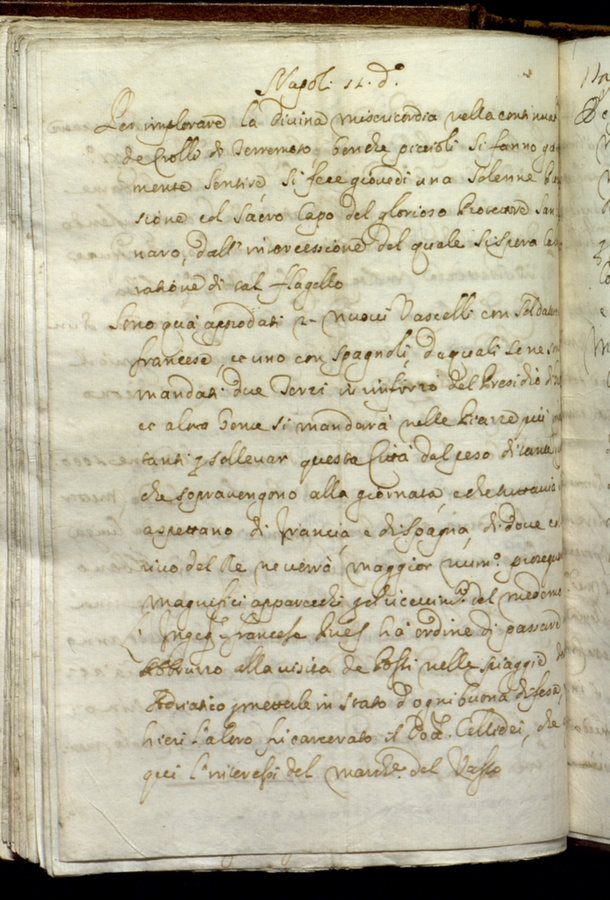 Napoli 11. d.º
Per implorare la Divina misericordia nella continuat
de Crolli di Terremoto, benche piccioli si fanno
mente sentire si fece giovedi una solenne
sione col Sacro Capo del glorioso Protettore San
naro, dall' intercessione del quale si spera
ratione di tal flagello
Sono quà approdati 2 nuovi Vascelli con soldatesca
francese, et uno con spagnoli, da quali se ne
mandati due Terzi in rinforzo del Presidio di
et altra Gente si mandarà nelle Piazze più
tanti p sollevar questa Città dal peso di tanta
che sopravengono alla giornata, e che tuttavia
aspettano di francia, e di Spagna, di dove
rivo del Re ne verrà maggior num.º
magnifici apparecchi p il ricevim.º del medemo
L' Ingeg.re francese ha ordine di passare
Abbruzzo alla visita de Posti nelle spiaggie
Adriatico p metterle in stato d' ogni buona difesa,
hieri l' altro fù carcerato il Cellidei, che
quei l' interessi del march.e del Vasto